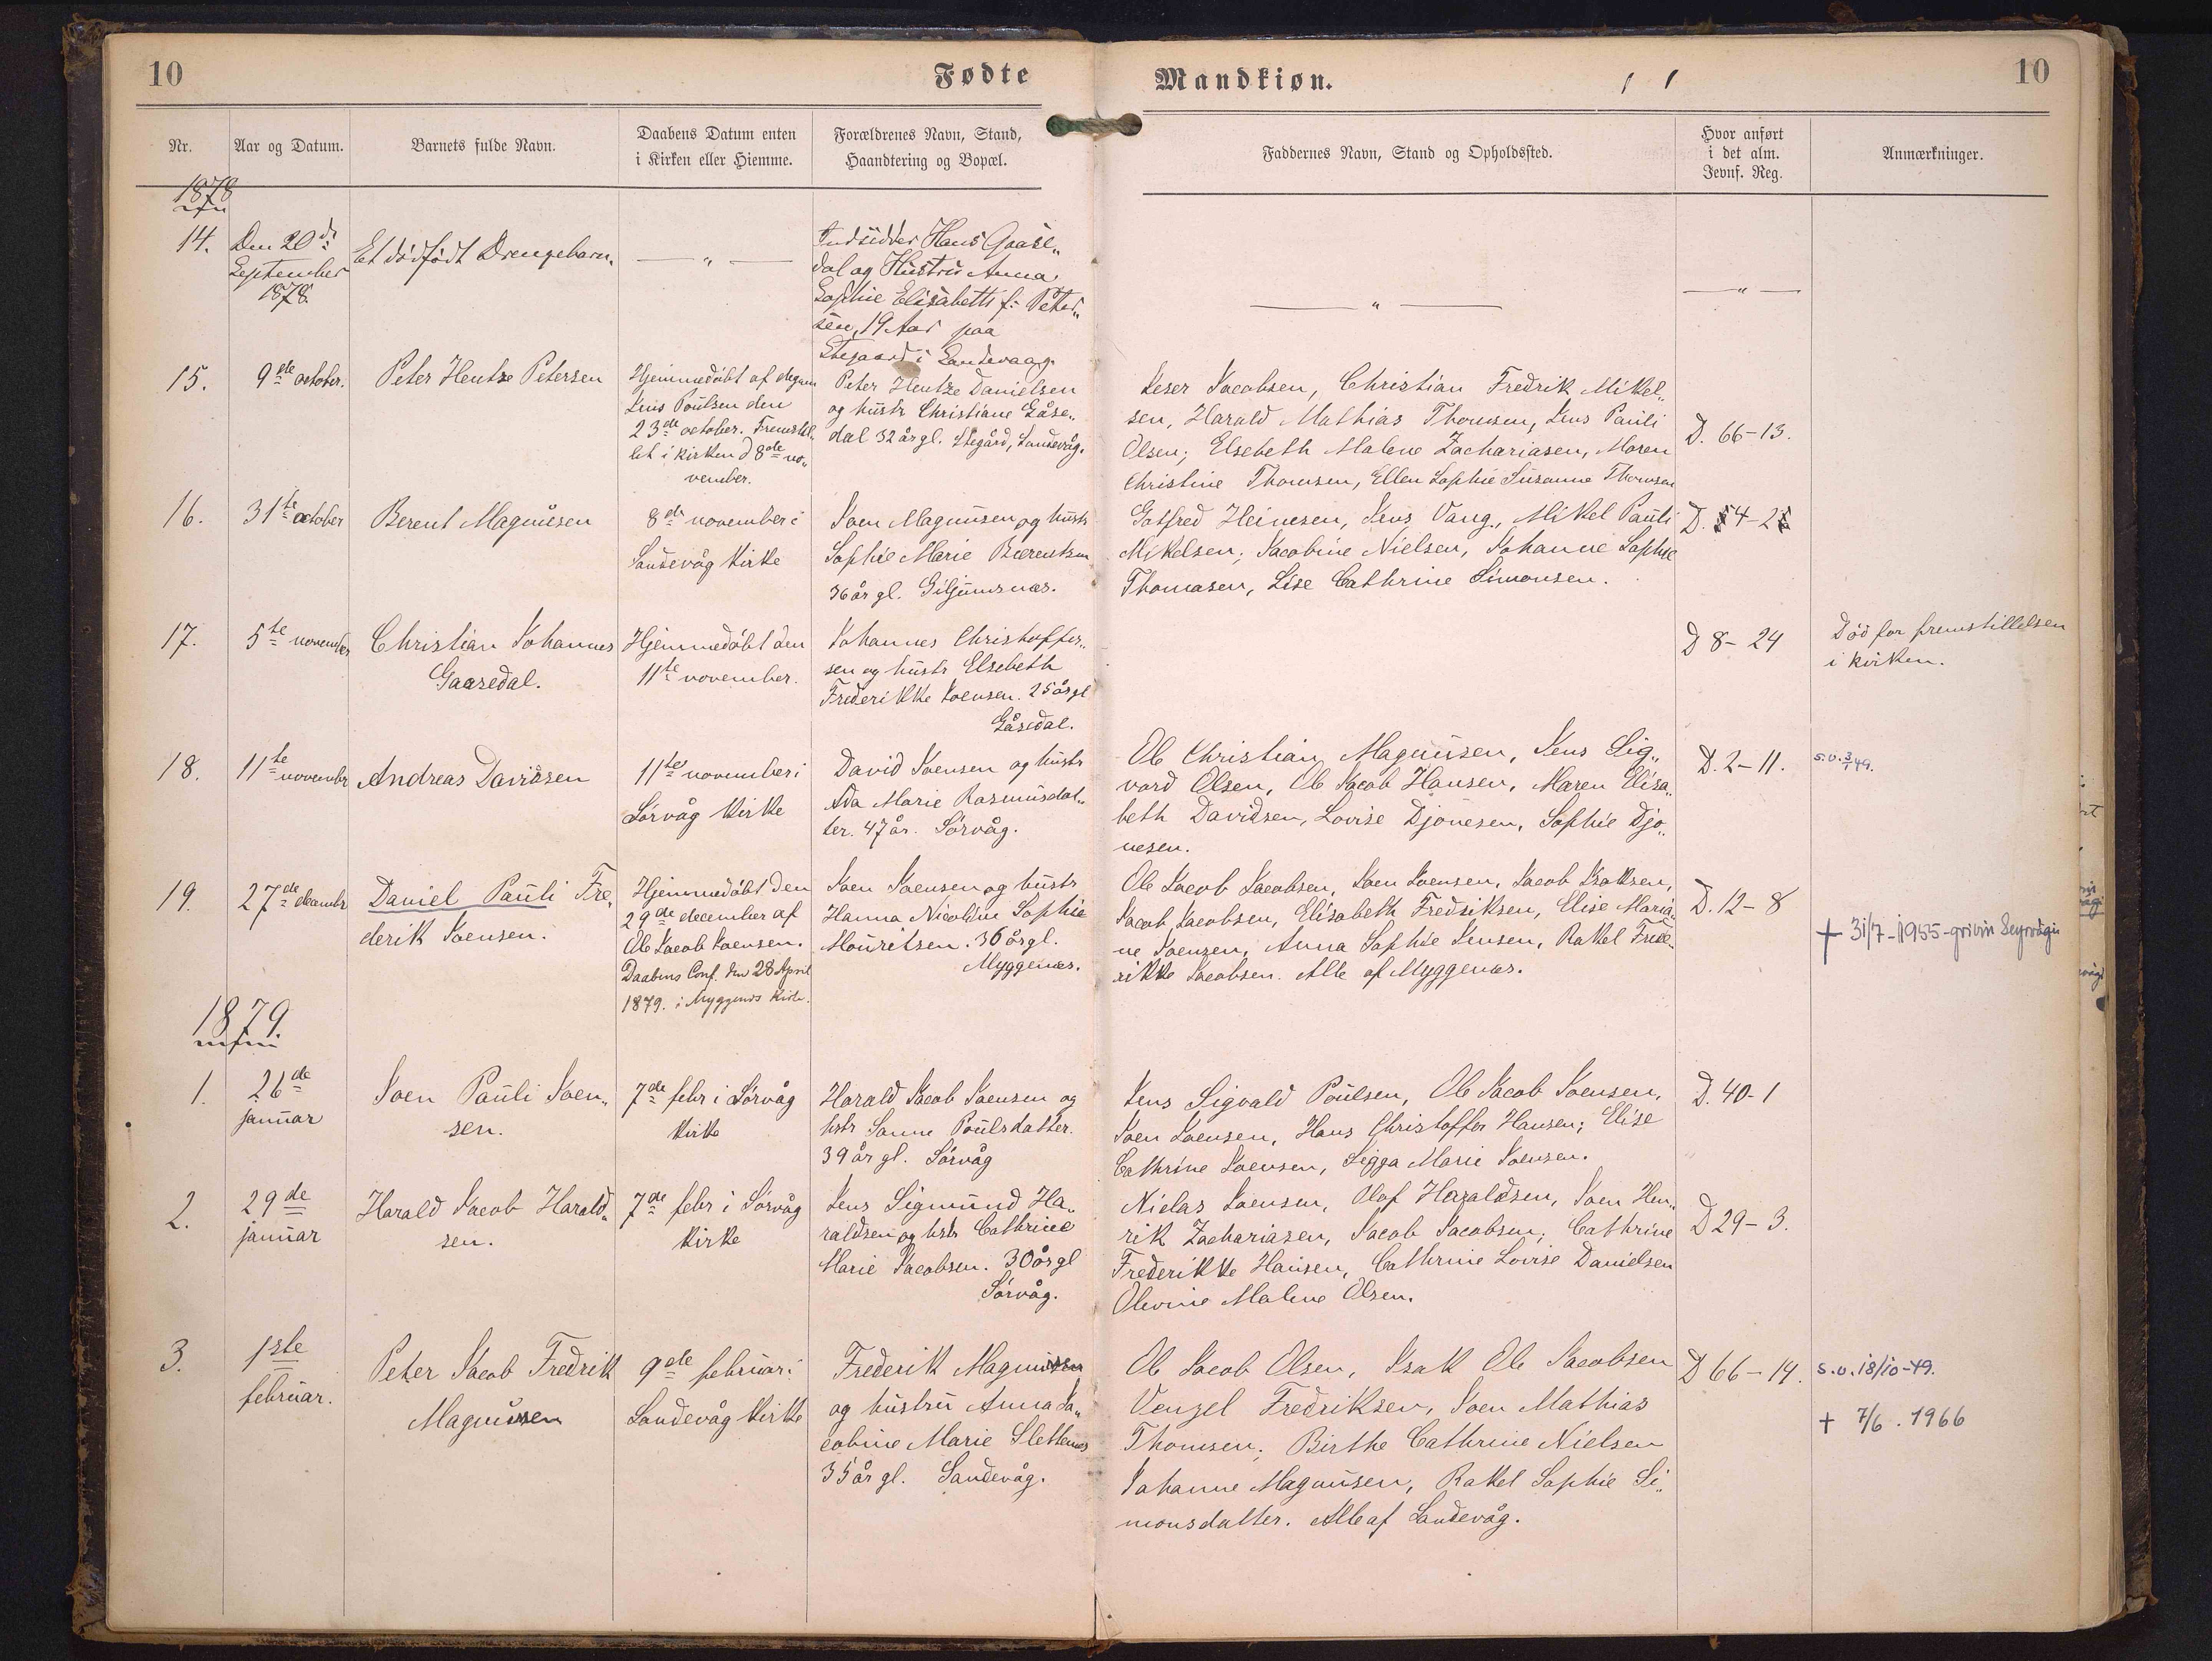 10
Fødte
Mandkiøn.
10
Nr.
Aar og Datum.
Barnets fulde Navn.
Daabens Datum enten
i Kirken eller Hiemme.
Forældrenes Navn, Stand,
Haandtering og Bopæl.
Faddernes Navn, Stand og Opholdssted.
Hvor anført
i det alm.
Jevnf. Reg.
Anmærkninger.
1878
14.
Den 20de
September
1878.
Et dødfødt Drengebarn.
— " —
Indsidder Hans Gaase„
dal og Hustru Anna
Sophie Elisabeth f: Peter„
sen, 19 Aar paa
Stegaard i Sandevaag.
— " —
— " —
15.
9de october.
Peter Hentze Petersen
Hjemmedøbt af degnen
Jens Poulsen den
23de october. Fremstil„
let i kirken d 8de no„
vember.
Peter Hentze Danielsen
og hustr Christiane Gåse„
dal 32 år gl. Stegård, Sandevåg.
Jeser Jacobsen, Christian Fredrik Mikkel„
sen, Harald Mathias Thomsen, Jens Pauli
Olsen; Elsebeth Malene Zachariasen, Maren
Christine Thomsen, Ellen Sophie Susanne Thomsen
D. 66-13.
16.
31te october
Berent Magnusen
8de november i
Sandevåg kirke
Joen Magnusen og hustr
Sophie Marie Berentsen
36 år gl. Giljumsnæs.
Gotfred Heinesen, Jens Vang, Mikkel Pauli
Mikkelsen; Jacobine Nielsen, Johanne Sophie
Thomasen, Lise Cathrine Simonsen.
17.
5te november
Christian Johannes
Gaasedal.
Hjemmedøbt den
11te november.
Johannes Christoffer„
sen og hustr Elsebeth
Frederikke Joensen. 25 år gl
Gåsedal.
D 8-24
Død før fremstillelsen
i kirken.
18.
11te november
Andreas Davidsen
11te november i
Sørvåg kirke
David Joensen og hustr
Ada Marie Rasmusdat„
ter. 47 år. Sørvåg.
Ole Christian Magnusen, Jens Sig„
vard Olsen, Ole Jacob Hansen, Maren Elisa„
beth Davidsen, Lovise Djonesen, Sophie Djo„
nesen.
D. 2-11.
s.v. 3/1 49.
19.
27de decembr
Daniel Pauli Fre„
derik Joensen.
Hjemmedøbt den
29de december af
Ole Jacob Joensen.
Daabens Conf. den 28 April
1879. i Myggenæs Kirke.
Joen Joensen og hustr
Hanna Nicoline Sophie
Mouritsen. 36 år gl.
Myggenæs.
Ole Jacob Jacobsen, Joen Joensen, Jacob Isaksen,
Jacob Jacobsen, Elisabeth Fredriksen, Elise Maria„
ne Joensen, Anna Sophie Jensen, Rakel Frede„
rikke Jacobsen. Alle af Myggenæs.
D. 12-8
+ 31/7-1955-grivin Seyrvágin
1879.
1.
26de
januar
Joen Pauli Joen„
sen.
7de febr i Sørvåg
kirke
Harald Jacob Joensen og
hstr Sanne Poulsdatter.
39 år gl. Sørvåg
Jens Sigvald Poulsen, Ole Jacob Joensen,
Joen Joensen, Hans Christoffer Hansen; Elise
Cathrine Joensen, Sigga Marie Joensen.
D. 40-1
2.
29de
januar
Harald Jacob Harald„
sen.
7de febr i Sørvåg
kirke
Jens Sigmund Ha„
raldsen og hstr Cathrine
Marie Jacobsen. 30 år gl
Sørvåg.
Nielas Joensen, Olaf Haraldsen, Joen Hen„
rik Zachariasen, Jacob Jacobsen; Cathrine
Frederikke Hansen, Cathrine Lovise Danielsen
Olevine Malene Olsen.
D 29-3.
3.
1ste
februar.
Peter Jacob Fredrik
Magnussen
9de februar i
Sandevåg kirke
Frederik Magnussen
og hustru Anna Ja„
cobine Marie Slettenæs
35 år gl. Sandevåg.
Ole Jacob Olsen, Isak Ole Jacobsen
Venzel Fredriksen, Joen Mathias
Thomsen; Birthe Cathrine Nielsen
Johanne Magnusen, Rakel Sophie Si„
monsdatter. Alle af Sandevåg.
D 66-14.
s.v. 18/10-49.
+ 7/6. 1966